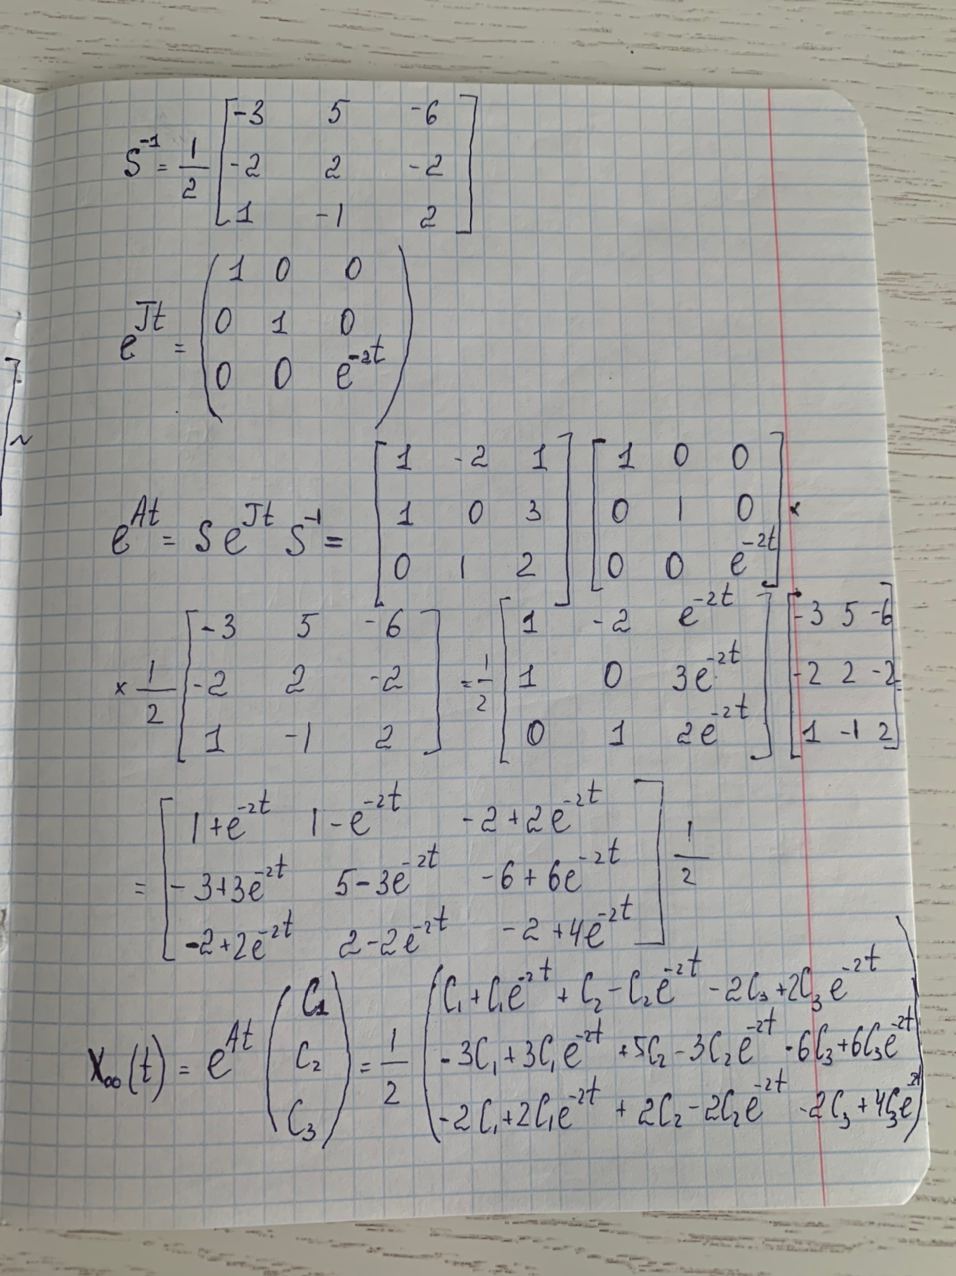 S⁻¹ = 1/2 [ -3 5 -6
-2 2 -2
1 -1 2 ]
e^{Jt} = ( 1 0 0
0 1 0
0 0 e^{-2t} )
e^{At} = S e^{Jt} S⁻¹ = [ 1 -2 1
1 0 3
0 1 2 ] [ 1 0 0
0 1 0
0 0 e^{-2t} ] ×
× 1/2 [ -3 5 -6
-2 2 -2
1 -1 2 ] = 1/2 [ 1 -2 e^{-2t}
1 0 3e^{-2t}
0 1 2e^{-2t} ] [ -3 5 -6
-2 2 -2
1 -1 2 ] =
= [ 1+e^{-2t} 1-e^{-2t} -2+2e^{-2t}
-3+3e^{-2t} 5-3e^{-2t} -6+6e^{-2t}
-2+2e^{-2t} 2-2e^{-2t} -2+4e^{-2t} ] 1/2
X₀₀(t) = e^{At} ( C₁
C₂
C₃ ) = 1/2 ( C₁+C₁e^{-2t} + C₂-C₂e^{-2t} -2C₃+2C₃e^{-2t}
-3C₁+3C₁e^{-2t} +5C₂-3C₂e^{-2t} -6C₃+6C₃e^{-2t}
-2C₁+2C₁e^{-2t} + 2C₂-2C₂e^{-2t} -2C₃+4C₃e^{-2t} )